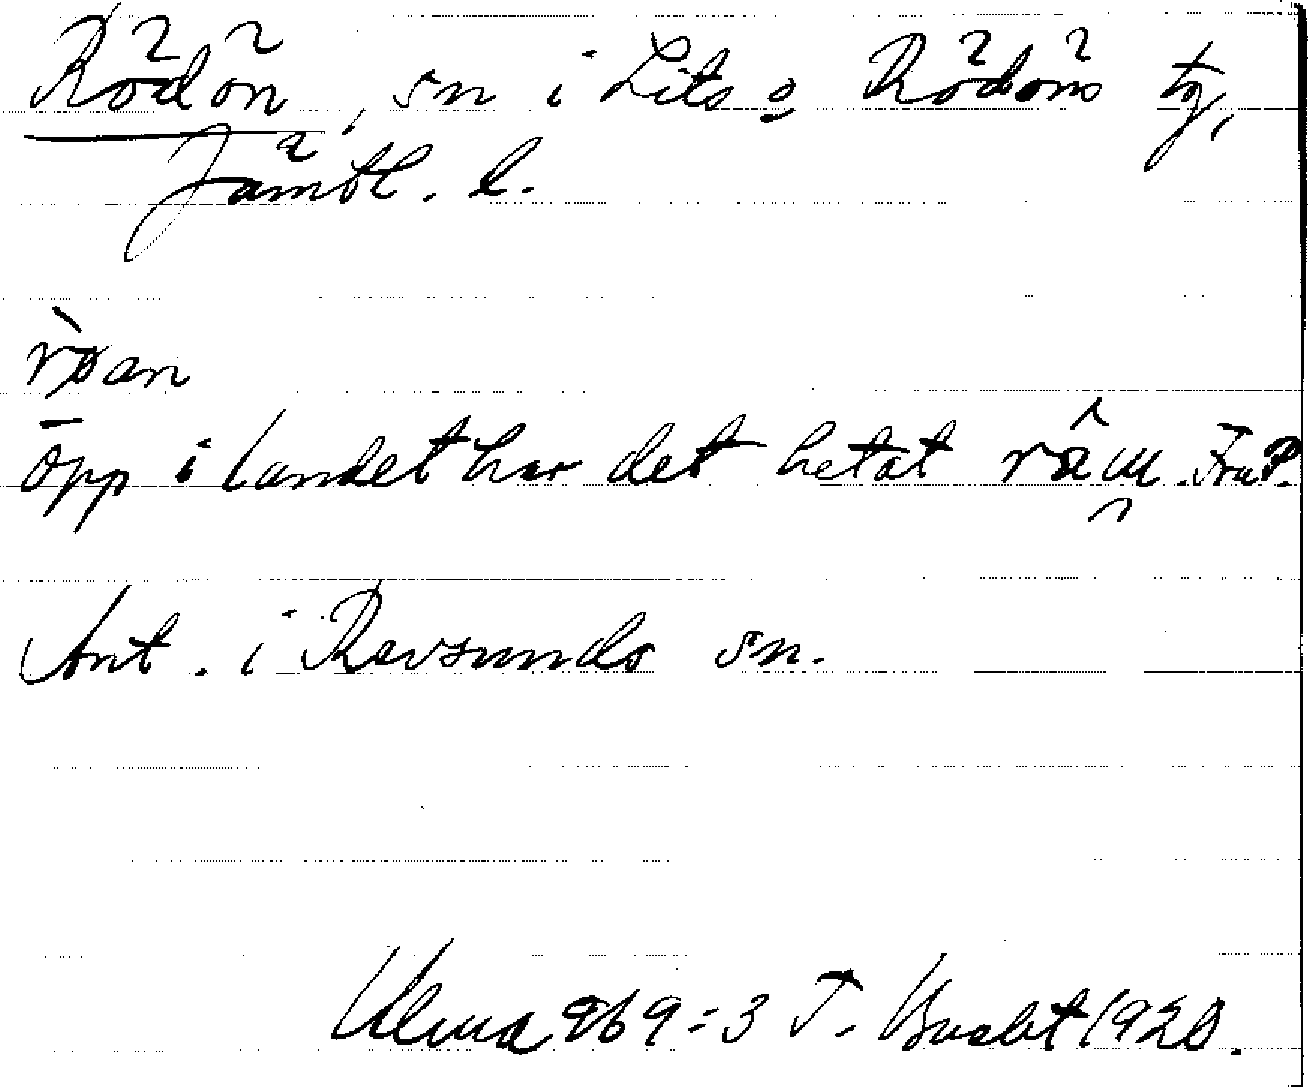 Rödön, sn i Lits o Rödöns tg,
Jämtl. l.
rø̀an
öpp i landet har det hetat
Ant. i Revsunds sn.
Ulma 269:3 T.